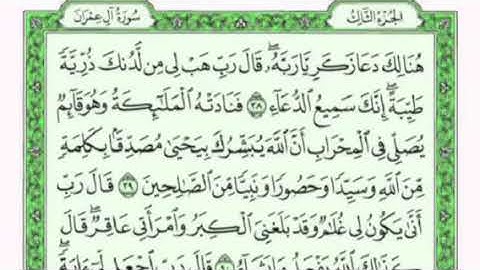 الجزء الثالث
سورة آل عمران
هُنَالِكَ دَعَا زَكَرِيَّا رَبَّهُۥ ۖ قَالَ رَبِّ هَبْ لِى مِن لَّدُنكَ ذُرِّيَّةً
طَيِّبَةً ۖ إِنَّكَ سَمِيعُ ٱلدُّعَآءِ ٣٨ فَنَادَتْهُ ٱلْمَلَٰٓئِكَةُ وَهُوَ قَآئِمٌ
يُصَلِّى فِى ٱلْمِحْرَابِ أَنَّ ٱللَّهَ يُبَشِّرُكَ بِيَحْيَىٰ مُصَدِّقًۢا بِكَلِمَةٍ
مِّنَ ٱللَّهِ وَسَيِّدًا وَحَصُورًا وَنَبِيًّا مِّنَ ٱلصَّٰلِحِينَ ٣٩ قَالَ رَبِّ
أَنَّىٰ يَكُونُ لِى غُلَٰمٌ وَقَدْ بَلَغَنِىَ ٱلْكِبَرُ وَٱمْرَأَتِى عَاقِرٌ ۖ قَالَ
كَذَٰلِكَ ٱللَّهُ يَفْعَلُ مَا يَشَآءُ ٤٠ قَالَ رَبِّ ٱجْعَل لِّىٓ ءَايَةً ۖ